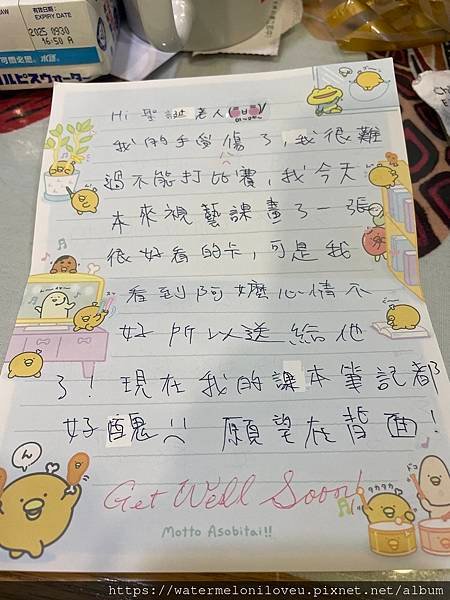 有效日期
EXPIRY DATE
2025 0930
16:50 A
可爾必思®水語
ルピスウォーター
Hi 聖誕老人
我的手受傷了,我很難
過不能打比賽,我今天
本來視藝課畫了一張
很好看的卡,可是我
看到阿嬤心情不
好所以送給他
了!現在我的課本筆記都
好醜 願望在背面!
Get Well Soon!
Motto Asobitai!!
ん
タカタカ
ドコ
https://watermeloniloveu.pixnet.net/album